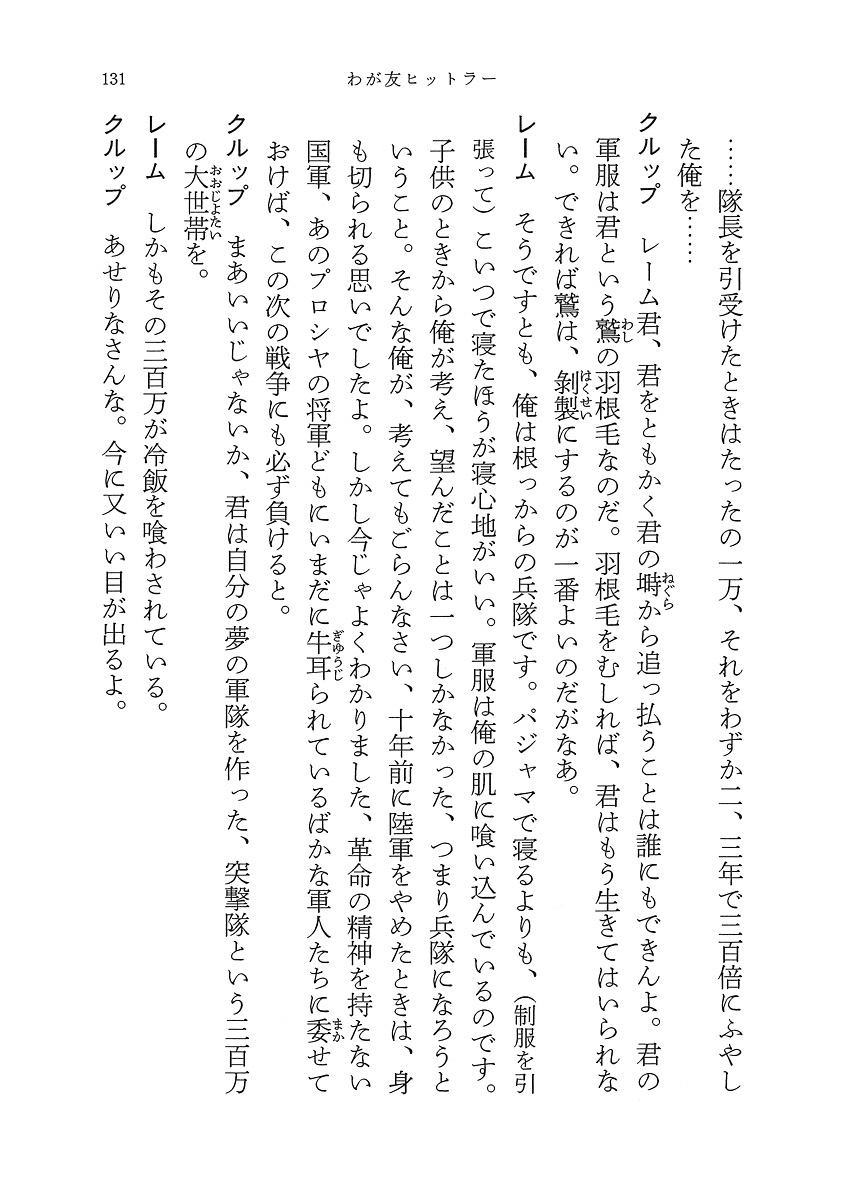 131
わが友ヒットラー
……隊長を引受けたときはたったの一万、それをわずか二、三年で三百倍にふやし
た俺を……
クルップ　レーム君、君をともかく君の塒から追っ払うことは誰にもできんよ。君の
軍服は君という鷲の羽根毛なのだ。羽根毛をむしれば、君はもう生きてはいられな
い。できれば鷲は、剝製にするのが一番よいのだがなあ。
レーム　そうですとも、俺は根っからの兵隊です。パジャマで寝るよりも、（制服を引
張って）こいつで寝たほうが寝心地がいい。軍服は俺の肌に喰い込んでいるのです。
子供のときから俺が考え、望んだことは一つしかなかった、つまり兵隊になろうと
いうこと。そんな俺が、考えてもごらんなさい、十年前に陸軍をやめたときは、身
も切られる思いでしたよ。しかし今じゃよくわかりました、革命の精神を持たない
国軍、あのプロシヤの将軍どもにいまだに牛耳られているばかな軍人たちに委せて
おけば、この次の戦争にも必ず負けると。
クルップ　まあいいじゃないか、君は自分の夢の軍隊を作った、突撃隊という三百万
の大世帯を。
レーム　しかもその三百万が冷飯を喰わされている。
クルップ　あせりなさんな。今に又いい目が出るよ。
ねぐら
わし
はくせい
ぎゅうじ
まか
おおじょたい